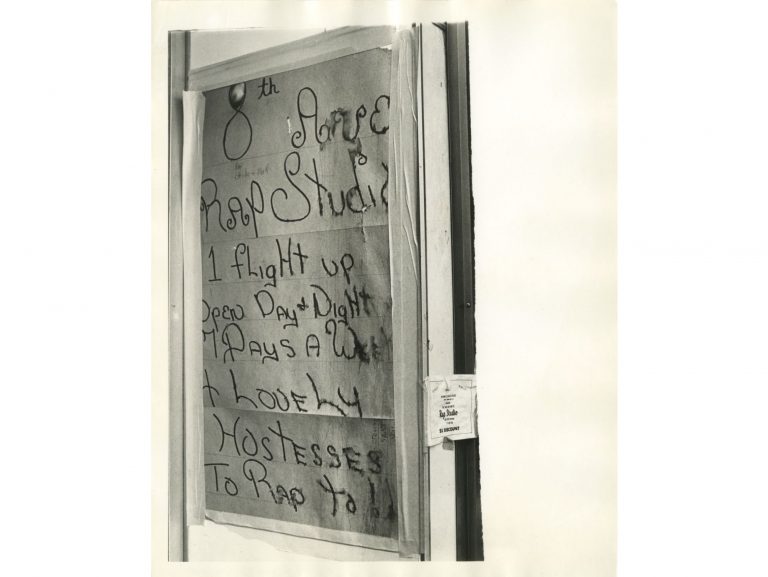 8th Ave
Rap Studio
1 flight up
Open Day & Night
7 Days A Week
4 Lovely
Hostesses
To Rap to!!
Rap Studio
$2 DISCOUNT